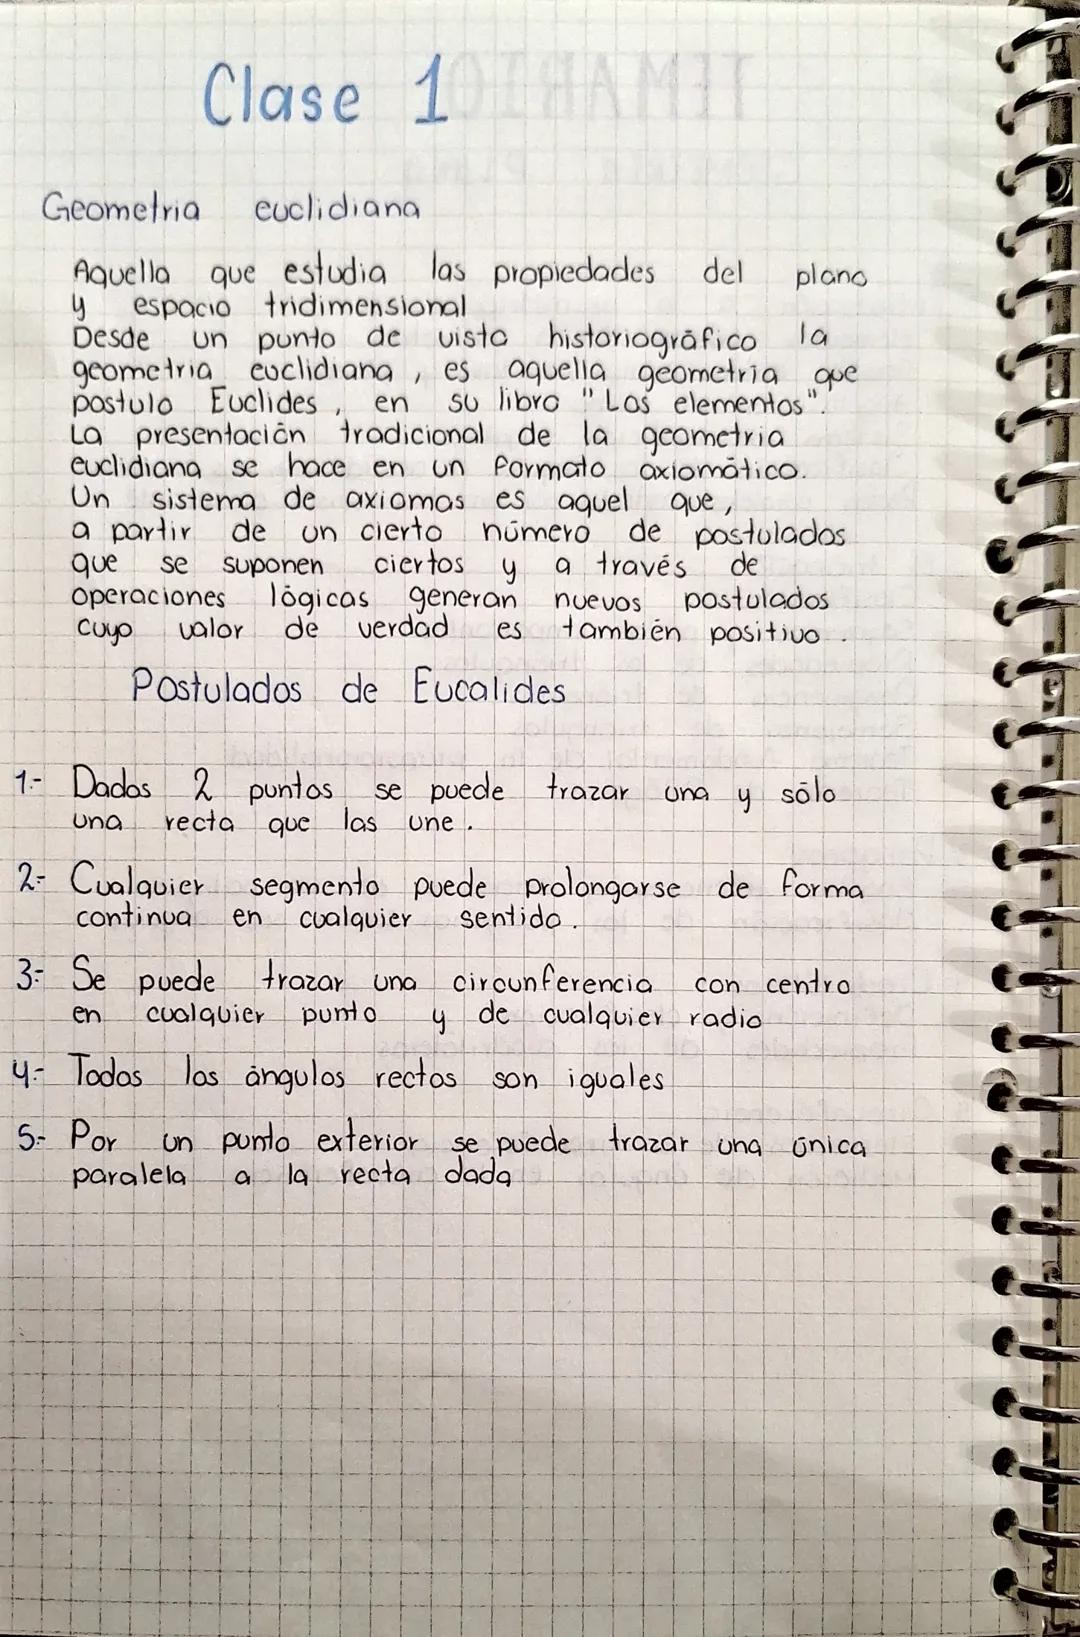 Clase 1
Geometria euclidiana
Aquella que estudia las propiedades del plano
y espacio tridimensional
Desde un punto de vista historiográfico la
geometria euclidiana, es aquella geometría que
postulo Euclides, en su libro "Los elementos".
La presentación tradicional de la geometria
euclidiana se hace en un formato axiomático.
Un sistema de axiomas es aquel que,
a partir de un cierto número de postulados
que se suponen ciertos y a través de
operaciones lógicas generan nuevos postulados
cuyo valor de verdad es también positivo.
Postulados de Eucalides
1.- Dados 2 puntos se puede trazar una y sólo
una recta que las une.
2.- Cualquier segmento puede prolongarse de forma
continua en cualquier sentido.
3.- Se puede trazar una circunferencia con centro
en cualquier punto y de cualquier radio
4.- Todos los ángulos rectos son iguales
5.- Por un punto exterior se puede trazar una única
paralela a la recta dada